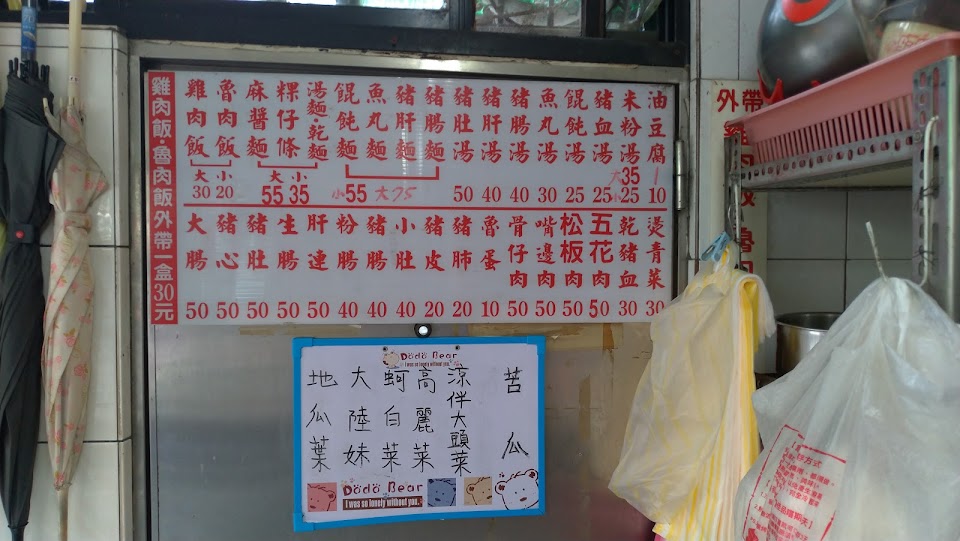 雞肉飯·魯肉飯外帶一盒30元
雞肉飯
魯肉飯
大30
小20
麻醬麵
粿仔條
湯麵乾麵
大55
小35
餛飩麵
魚丸麵
豬肝麵
豬腸麵
小55 大75
豬肚湯 50
豬肝湯 40
豬腸湯 40
魚丸湯 30
餛飩湯 25
豬血湯 25
米粉湯 大35 小25
油豆腐 1 10
大腸 50
豬心 50
豬肚 50
生腸 50
肝連 50
粉腸 40
豬腸 40
小肚 40
豬皮 20
豬肺 20
魯蛋 10
骨仔肉 50
嘴邊肉 50
松板肉 50
五花肉 50
乾豬血 30
燙青菜 30
外帶
Dodo Bear
I was so lonely without you.
地瓜葉
大陸妹
蚵白菜
高麗菜
涼伴大頭菜
苦瓜
Dodo Bear
I was so lonely without you.